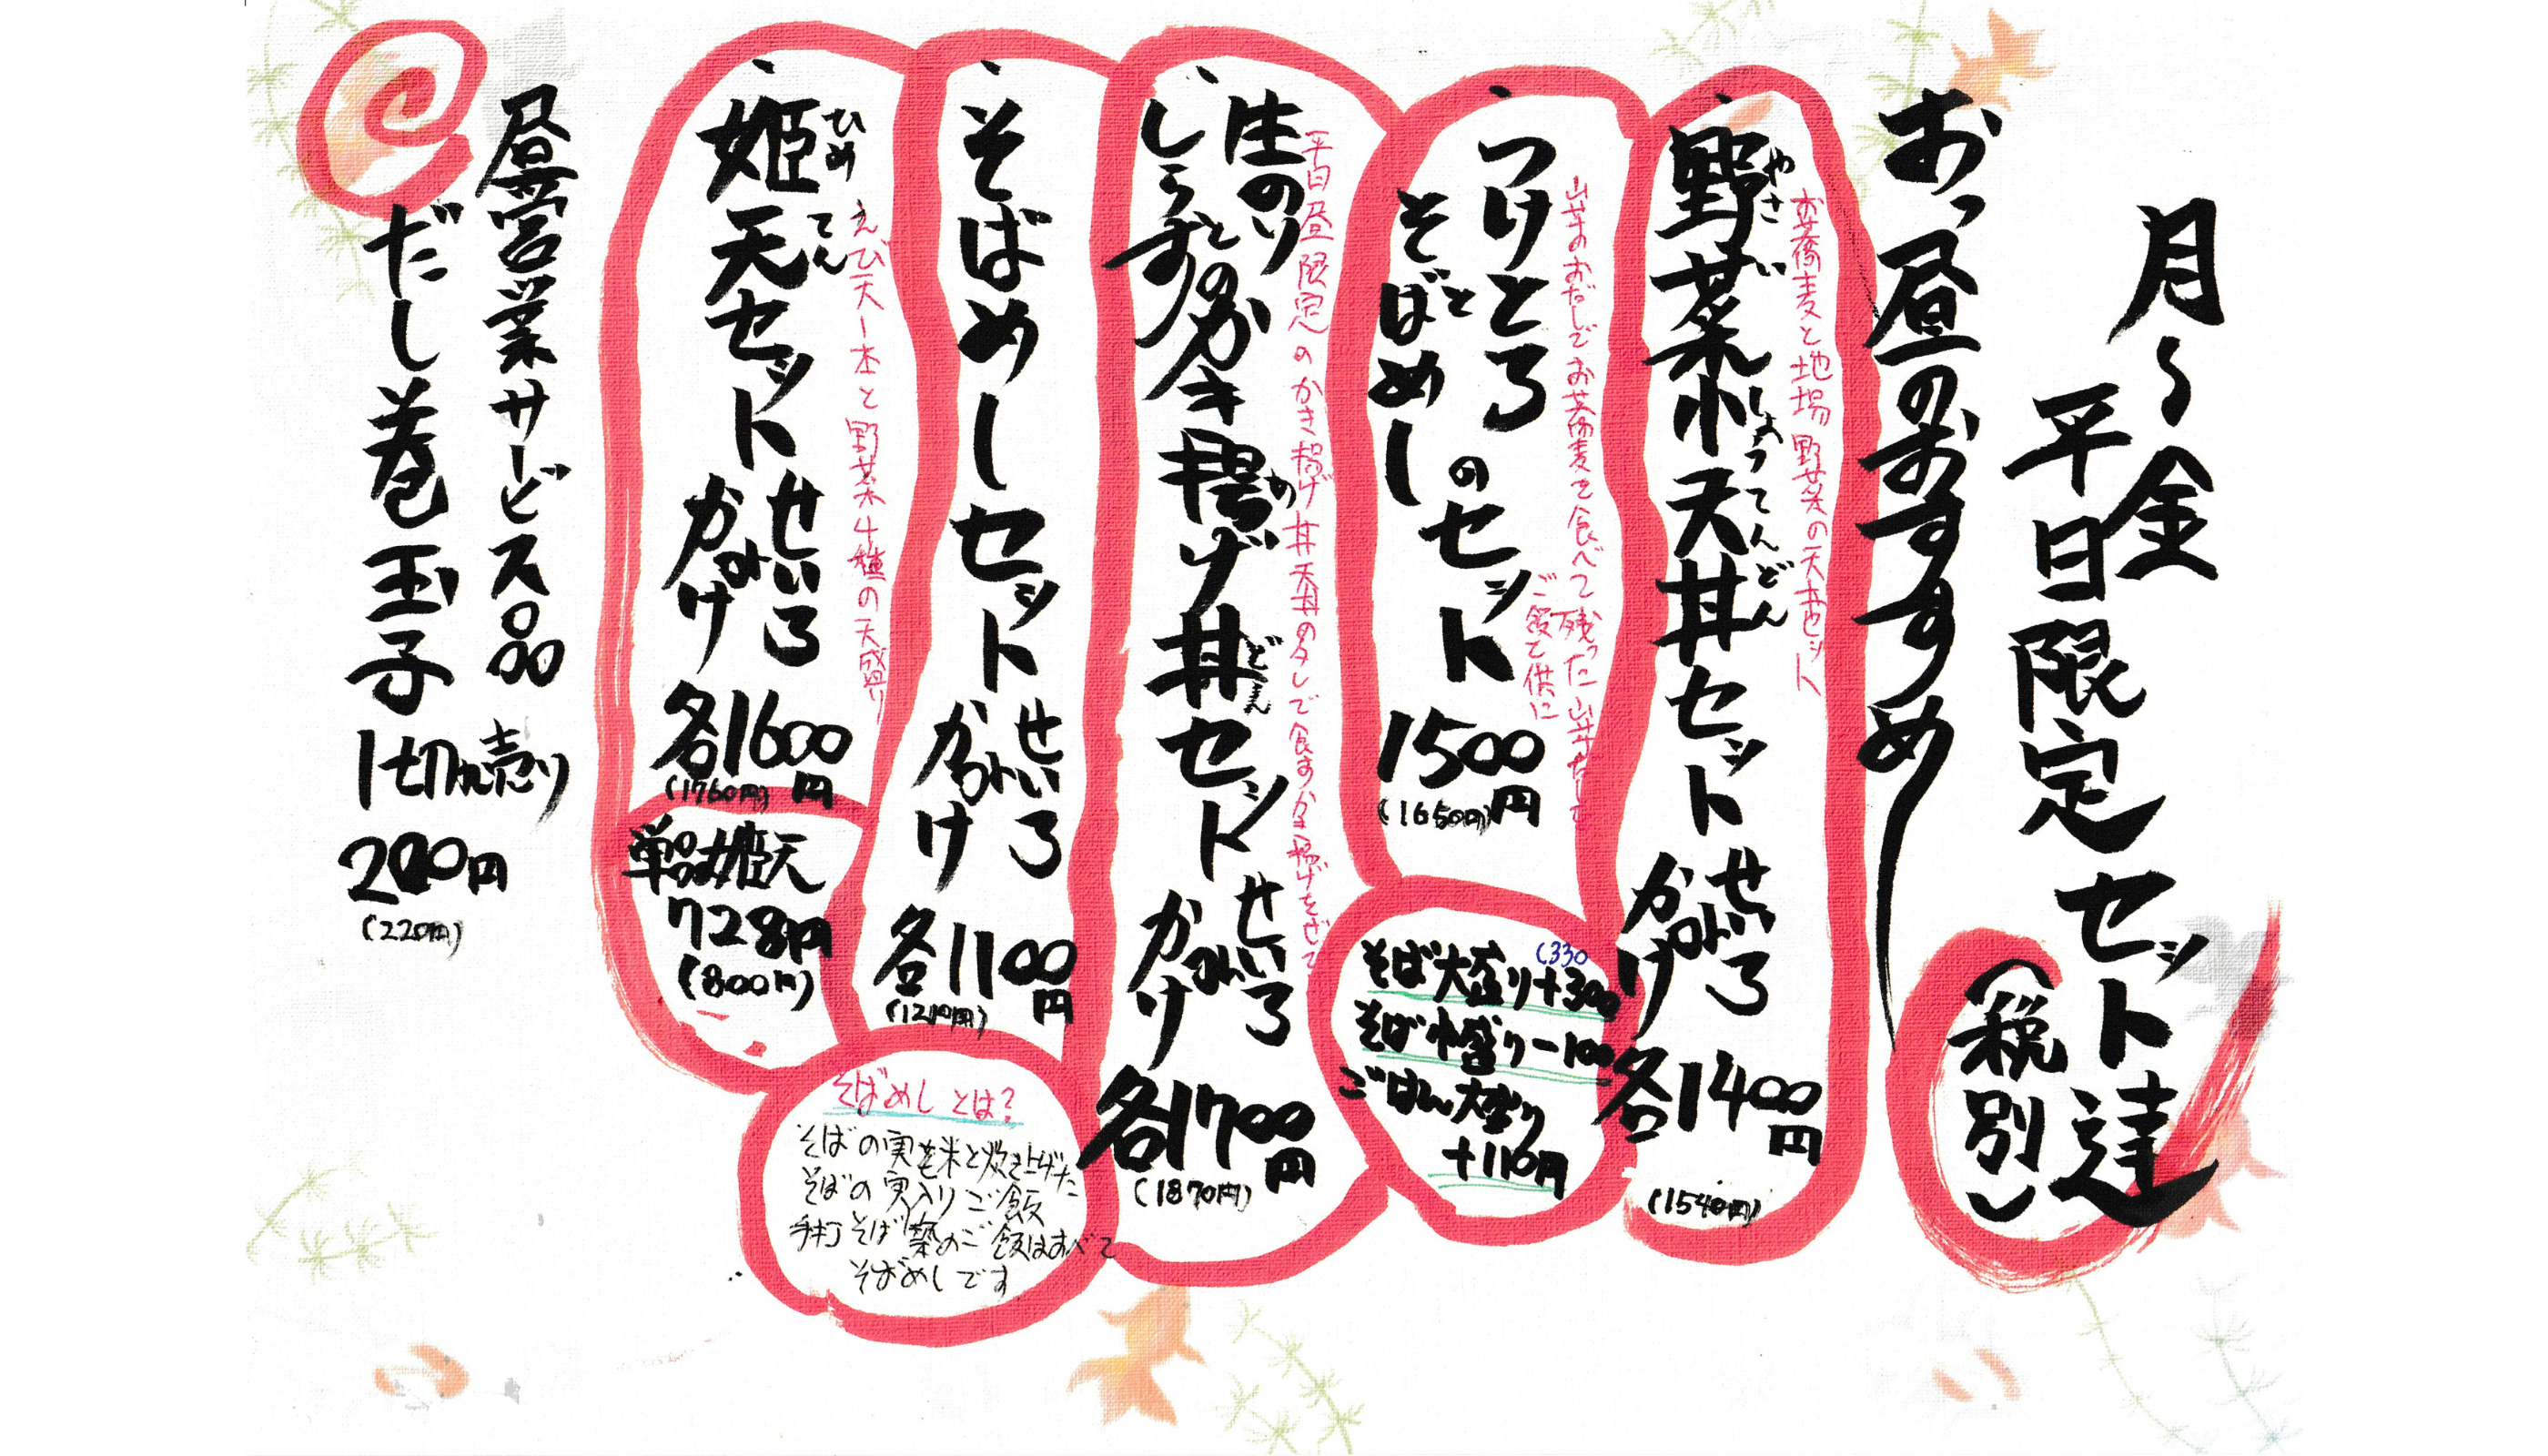 月〜金
平日限定セット達
(税別)
おっ昼のおすすめ
野菜小天丼セット せいろ かけ 各1400円
やさい しょうてんどん
(1540円)
お蕎麦と地場野菜の天丼セット
つけとろとそばめしのセット 1500円
(1650円)
山芋のおだしでお蕎麦を食べて残った山芋だしを
ご飯で供に
そば大盛り+300
(330
そば小盛り-100
ごはん大盛り
+110円
生のりとしらすのかき揚げ丼セット せいろ かけ 各1700円
どん
(1870円)
平日昼限定のかき揚げ丼
そばめしセット せいろ かけ 各1100円
(1210円)
そばめしとは?
そばの実を米と炊き上げた
そばの実入りご飯
手打そば築のご飯はすべて
そばめしです
姫天セット せいろ かけ 各1600円
ひめてん
(1760円)
えび天一本と野菜4種の天盛り
単品姫天
728円
(800円)
昼営業サービス品
だし巻玉子 1切れ売り
200円
(220円)